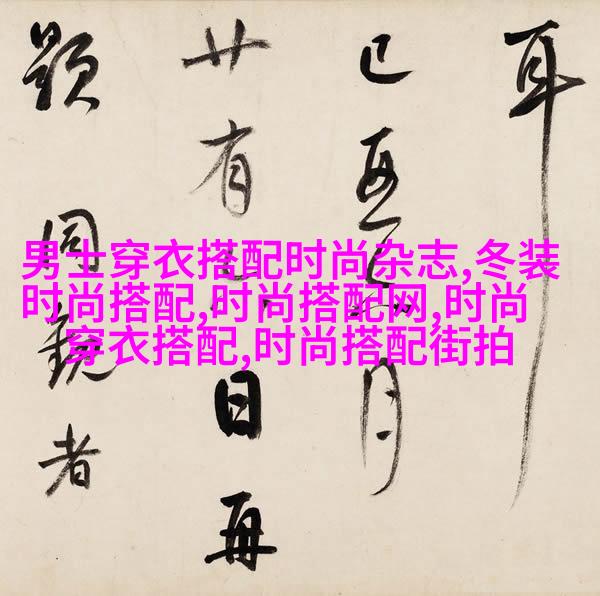 耳
已亥月
廿有日再
題同觀者
男士穿衣搭配时尚杂志,冬装
时尚搭配,时尚搭配网,时尚
穿衣搭配,时尚搭配街拍